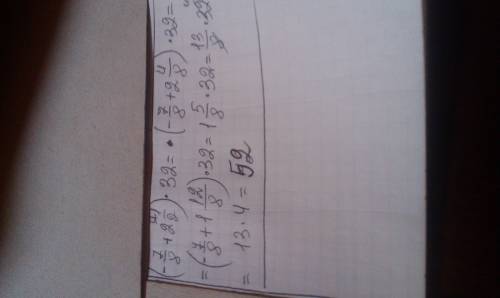 (-7/8 + 2 1/2) · 32 = · (-7/8 + 2 4/8) · 32 =
= (-7/8 + 1 12/8) · 32 = 1 5/8 · 32 = 13/8 · 32
= 13 · 4 = 52